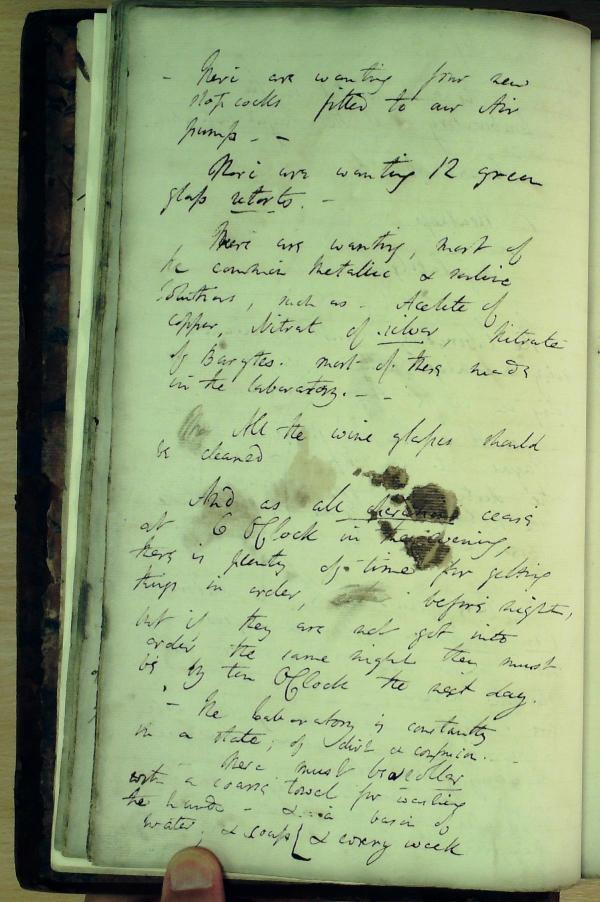 - There are wanting four new
stop cocks fitted to our Air
pump. -
There are wanting 12 green
glass retorts. -
There are wanting, most of
the common metallic & saline
Solutions, such as Acetite of
copper, Nitrat of silver, Nitrate
of Barytes. most of these made
in the laboratory. - -
All the wine glasses should
be cleaned
And as all operations cease
at 6 OClock in the evening,
there is plenty of time for getting
things in order, before night,
but if they are not got into
order the same night they must
be by ten OClock the next day.
- The laboratory is constantly
in a state, of dirt & confusion.
- There must be a roller
with a coarse towel for washing
the hands - & a basin of
water, & soap & every week